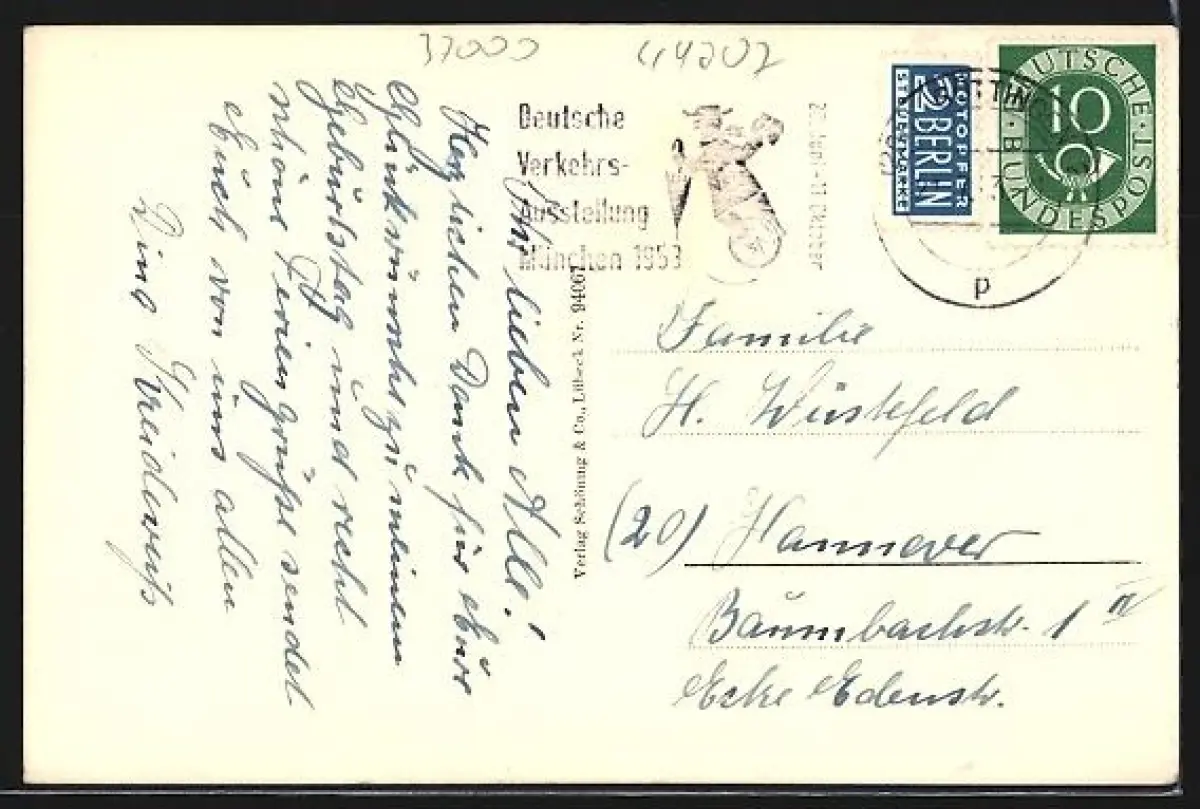 37000
44202
Deutsche
Verkehrs-
Ausstellung
München 1953
20. Juni - 11. Oktober
NOTOPFER
2 BERLIN
STEUERMARKE
DEUTSCHE
10
BUNDESPOST
p
Ihr lieben All!
Herzlichen Dank für Eure
Glückwünsche zu meinem
Geburtstag und recht
schöne Feriengrüße sendet
Euch von uns allen
Verlag Schöning & Co., Lübeck Nr. 94067
Familie
H. Wüstefeld
(20) Hannover
Baumbachstr. 1 II
Ecke Edenstr.